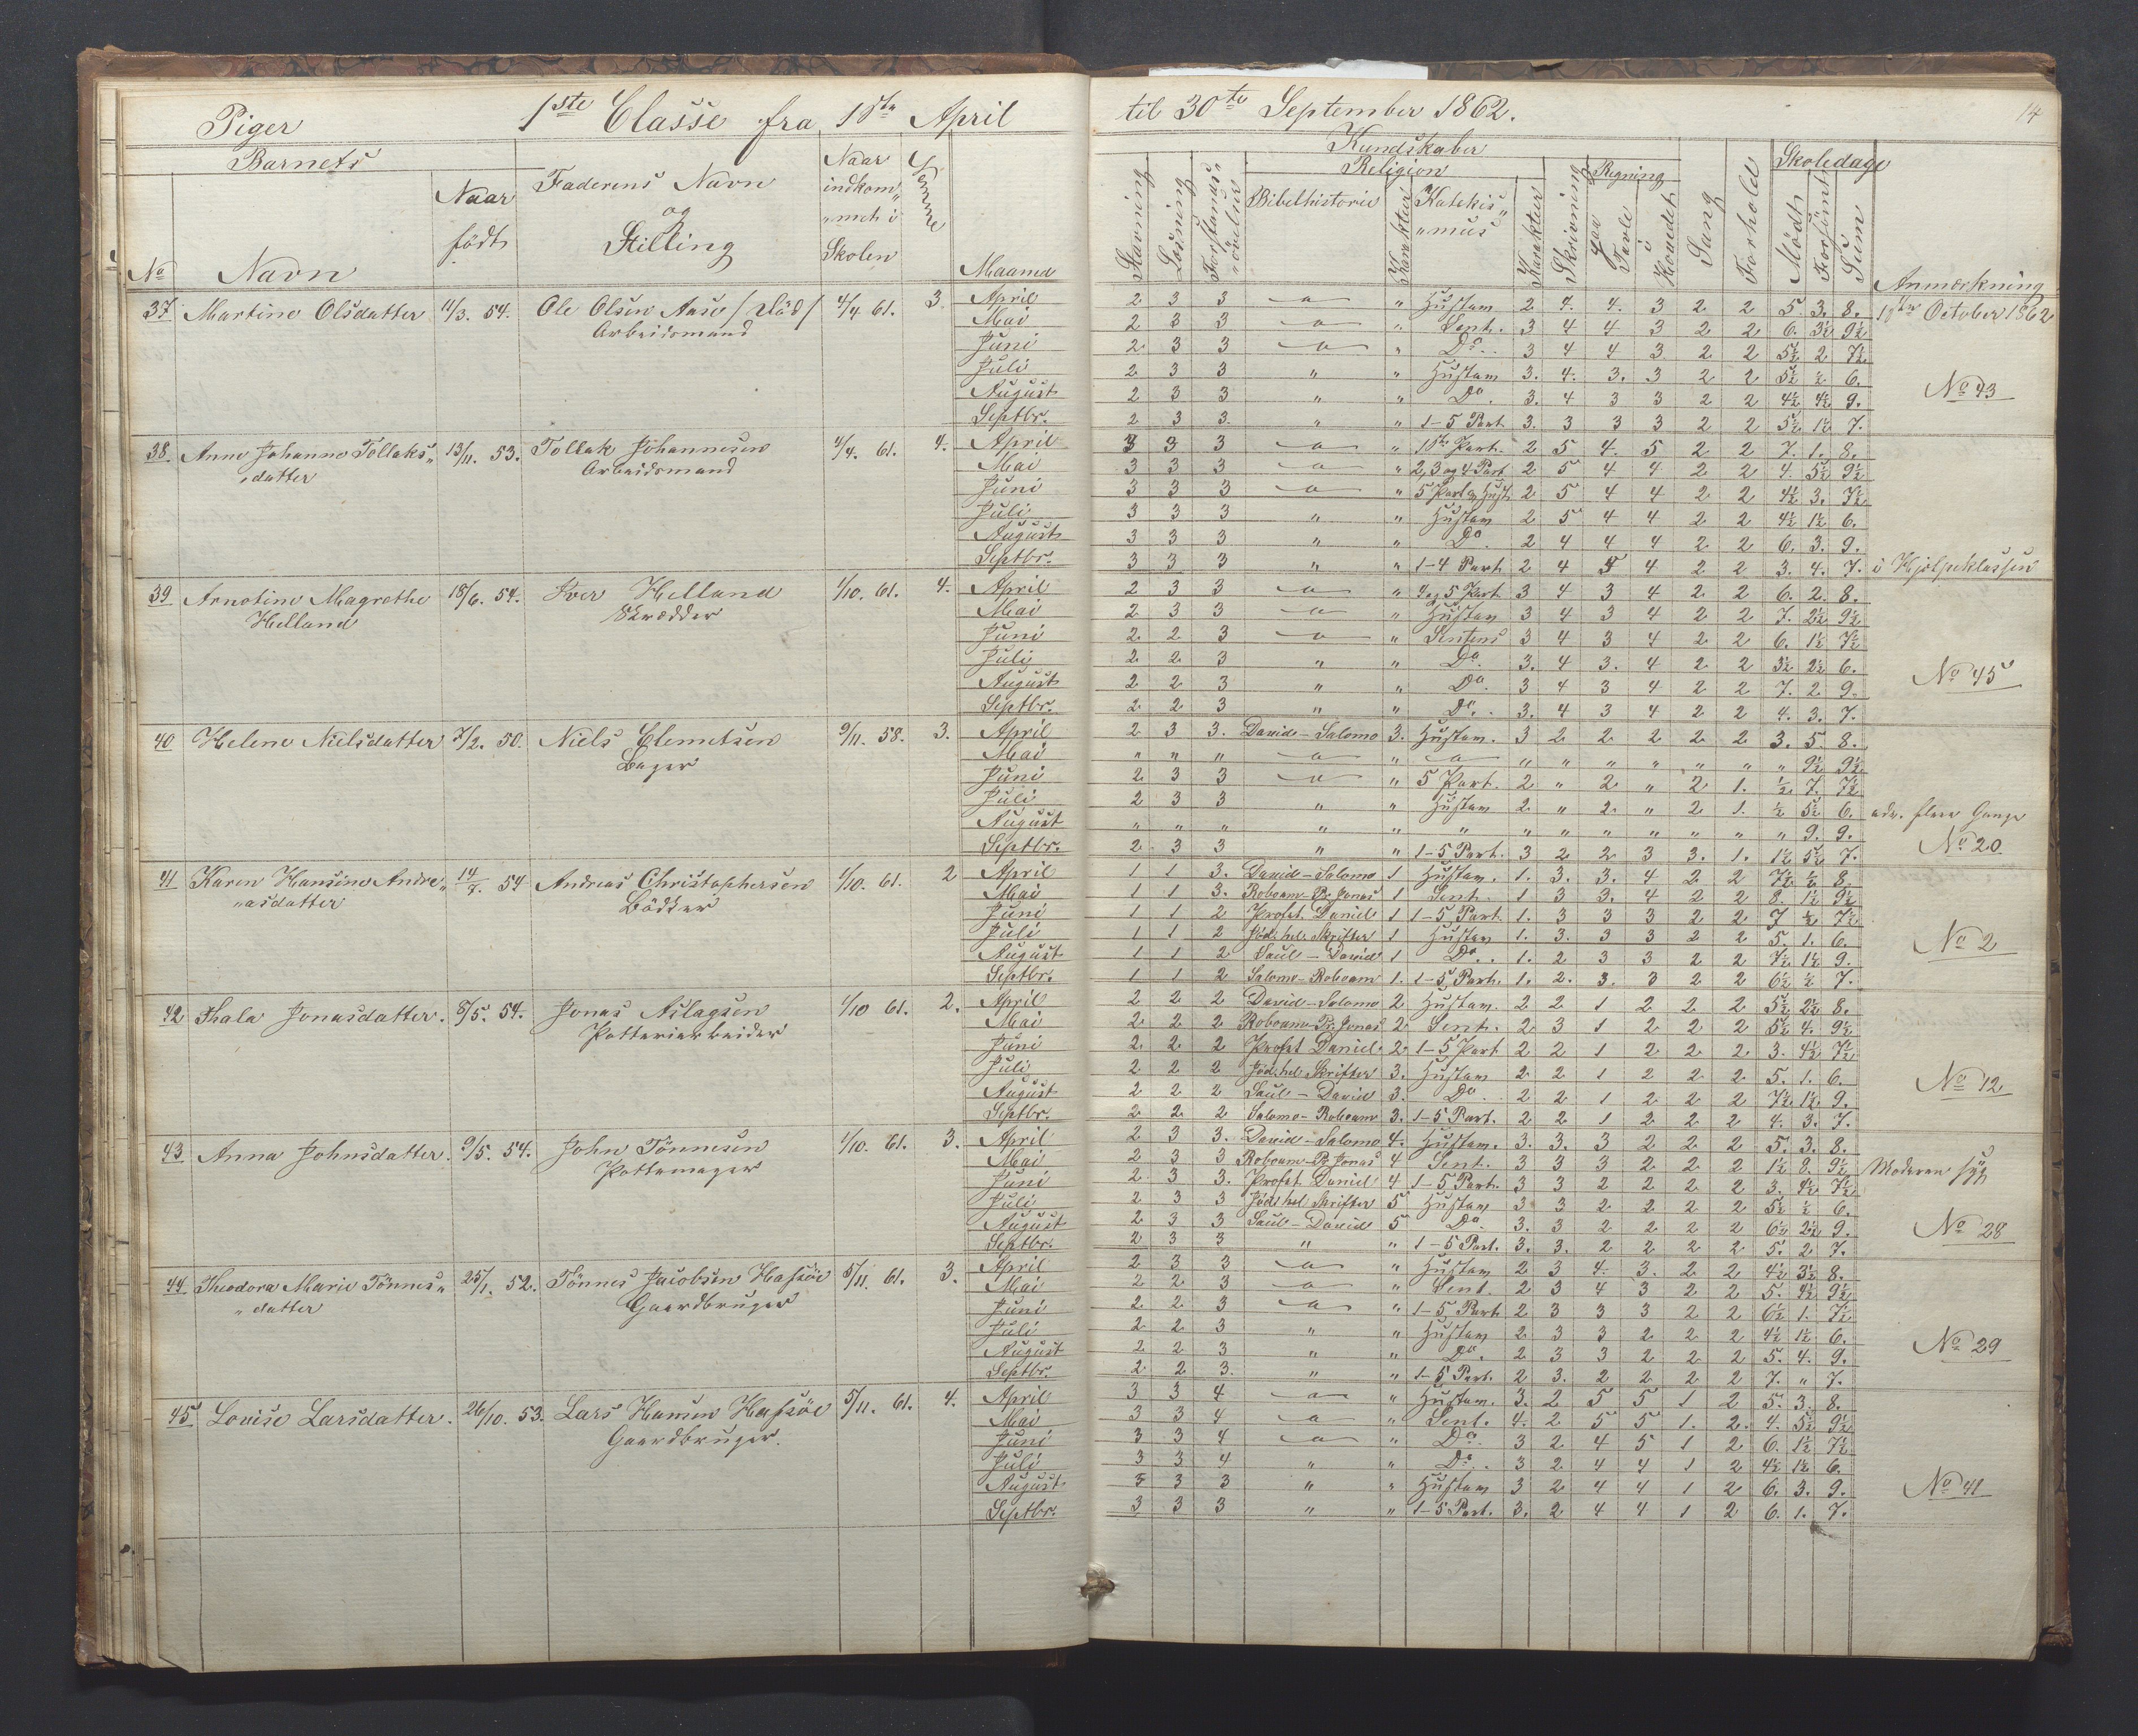 Piger 1ste Classe fra 1ste April til 30te September 1862. 14
Barnets
Kundskaber
Skoledage
Religion
Regning
No Navn Naar født Faderens Navn og Stilling Naar indkom„ „met i Skolen Maaned Stavning Læsning Forstands„ „øvelse Bibelhistorie Karakter Katekis„ „mus Karakter Skrivning paa Tavle i Hovedet Sang Forhold Mødt Forsømt Sum Anmærkning
37 Martine Olsdatter 11/3. 54. Ole Olsen Aase / død / 4/4 61. 3 April 2 3 3 " Hustavn 2 4. 4. 3 2 2 5. 3. 8. 1ste October 1862
Arbeidsmand Mai 2 3 3 " Sent. 3 4 4 3 2 2 6. 3½ 9½
Juni 2 3 3 " Do. 3 4 4 3 2 2 5½ 2 7½
Juli 2 3 3 " " Hustavn 3. 4. 3. 3 2 2 5½ ½ 6. No 43
August 2 3 3 " " Do. 3. 4 3 3 2 2 4½ 4½ 9.
Septbr. 2 3 3. " " 1-5 Part 3. 3 3 3 2 2 5½ 1½ 7.
38 Anne Johanne Tollaks„ 13/11. 53. Tollak Johannesen 4/4. 61. 4. April 3 3 3 " 1ste Part. 2 5 4. 5 2 2 7. 1. 8.
„datter Arbeidsmand Mai 3 3 3 " 2, 3 og 4 Part 2 5 4 4 2 2 4. 5½ 9½
Juni 3 3 3 " 5 Part og Hust. 2 5 4 4 2 2 4½ 3. 7½
Juli 3 3 3 " " Hustavn 2 5 4 4 2 2 4½ 1½ 6.
August 3 3 3 " " Do. 2 4 4 4 2 2 6. 3. 9.
Septbr. 3 3 3 " " 1-4 Part 2 4 4 2 2 3. 4. 7. i Hjelpeklassen
39 Arnotine Magrethe 18/6. 54. Iver Helland 1/10. 61. 4. April 2 3 3 " 4 og 5 Part 3 4 3 4 2 2 6. 2. 8.
Helland Skrædder Mai 2 3 3 " Hustavn 3 4 3 4 2 2 7. 2½ 9½
Juni 2 2 3 " Sentens 3 4 3 4 2 2 6. 1½ 7½
Juli 2 2 3 " " Do. 3. 4 3. 4 2 2 3½ 2½ 6. No 45
August 2 2 3 " " Do. 3 4 3 4 2 2 7. 2. 9.
Septbr. 2 2 3 " " Do. 3. 4 3 4 2 2 4. 3. 7.
40 Helene Nielsdatter 7/2. 50. Niels Clemetsen 9/11. 58. 3. April 2 3 3. David-Salomo 3. Hustavn. 3 2 2 2 2 2 3. 5. 8.
Bager Mai " " " " " " " " " " " " 9½ 9½
Juni 2 3 3 " 5 Part. 2 " 2 " 2 1. ½ 7. 7½
Juli 2 3 3 " " Hustavn 2 " 2. " 2 1. ½ 5½ 6. adv. flere Gange
August " " " " " " " " " " " " " 9. 9.
Septbr. 2 3 3 " " 1-5 Part. 3 2 2 3 3. 1. 1½ 5½ 7. No 20
41 Karen Hansine Andre„ 14/7. 54 Andreas Christophersen 1/10. 61. 2 April 1 1 3. David-Salomo 1 Hustavn. 1. 3. 3. 4 2 2 7½ ½ 8.
„asdatter Bødker Mai 1 1 3. Roboam-Pr Jonas 1 Sent. 1 3 3. 4 2 2 8. 1½ 9½
Juni 1 1 2 Profet. Daniel 1 1-5 Part. 1. 3 3 3 2 2 7 ½ 7½
Juli 1 1 2 Jød. hel. Skrifter 1 Hustavn 1. 3. 3 3 2 2 5. 1. 6. No 2
August 1 1 2 Saul-David 1 Do. 1. 2 3 3 2 2 7½ 1½ 9.
Septbr. 1 1 2 Salomo-Roboam 1. 1-5 Part. 1. 2. 3. 3 2 2 6½ ½ 7.
42 Thala Jonasdatter. 8/5. 54. Jonas Aslagsen 1/10 61. 2. April 2 2 2 David-Salomo 2 Hustavn. 2 2 1 2 2 2 5½ 2½ 8.
Potteriarbeider Mai 2 2 2 Roboam-Pr Jonas 2 Sent. 2 3 1 2 2 2 5½ 4. 9½
Juni 2 2 2 Profet Daniel. 2 1-5 Part 2 2 1 2 2 2 3. 4½ 7½
Juli 2 2 2 Jød. hel. Skrifter 3. Hustavn 2 2 1 2 2 2 5. 1. 6. No 12
August 2 2 2 Saul-David 3. Do. 2 2 1 2 2 2 7½ 1½ 9.
Septbr. 2 2 2 Salomo-Roboam 3. 1-5 Part. 2 2 1 2 2 2 4. 3. 7.
43 Anna Johnsdatter. 9/5. 54. John Tønnesen 1/10. 61. 3. April 2 3 3. David-Salomo 4. Hustavn. 3. 3. 3 2 2 2 5. 3. 8.
Pottemager Mai 2 3 3 Roboam-Pr Jonas 4 Sent. 3 3 3 2 2 2 1½ 8. 9½ Moderen syg
Juni 2 3 3. Profet. Daniel 4 1-5 Part. 3 3 2 2 2 2 3. 4½ 7½
Juli 2 3 3 Jød. hel. Skrifter 5 Hustavn 3 3 2 2 2 2 5½ ½ 6.
August 2 3 3 Saul-David 5 Do. 3. 3 2 2 2 2 6½ 2½ 9. No 28
Septbr. 2 3 3 " " 1-5 Part. 3. 3. 2 2 2 2 5. 2 7.
44 Theodora Marie Tønnes„ 25/1. 52. Tønnes Jacobsen Hafsøe 5/11. 61. 3. April 2 3 3 " Hustavn 2 3 4. 3. 2 2 4½ 3½ 8.
„datter Gaardbruger Mai 2 2 3 " Sent. 2 3 4 3 2 2 5. 4½ 9½
Juni 2 2 3 " 1-5 Part 2 3 3 3 2 2 6½ 1. 7½
Juli 2 2 3 " " Hustavn 2 3 3 2 2 2 4½ 1½ 6. No 29
August 2 2 3 " " Do. 2 3 3 2 2 2 5. 4. 9.
Septbr. 2 2 3. " " 1-5 Part. 2 3. 2 2 2 2 7. " 7.
45 Lovise Larsdatter. 26/10. 53. Lars Hansen Hafsøe 5/11. 61. 4. April 3 3 4 " Hustavn. 3. 2 5 5 1 2 5. 3. 8.
Gaardbruger. Mai 3 3 4 " Sent. 4. 2 5 5 1. 2. 4. 5½ 9½
Juni 3 3 4 " Do. 3 2 4 5 1 2 6. 1½ 7½
Juli 3 3 4 " " Do. 3 2 4 4 1 2 4½ 1½ 6.
August 3 3 3 " " Hustavn 3 2 4 4 1 2 6. 3. 9. No 41
Septbr. 3 3 3 " " 1-5 Part. 3. 2 4 4 1 2 6. 1. 7.